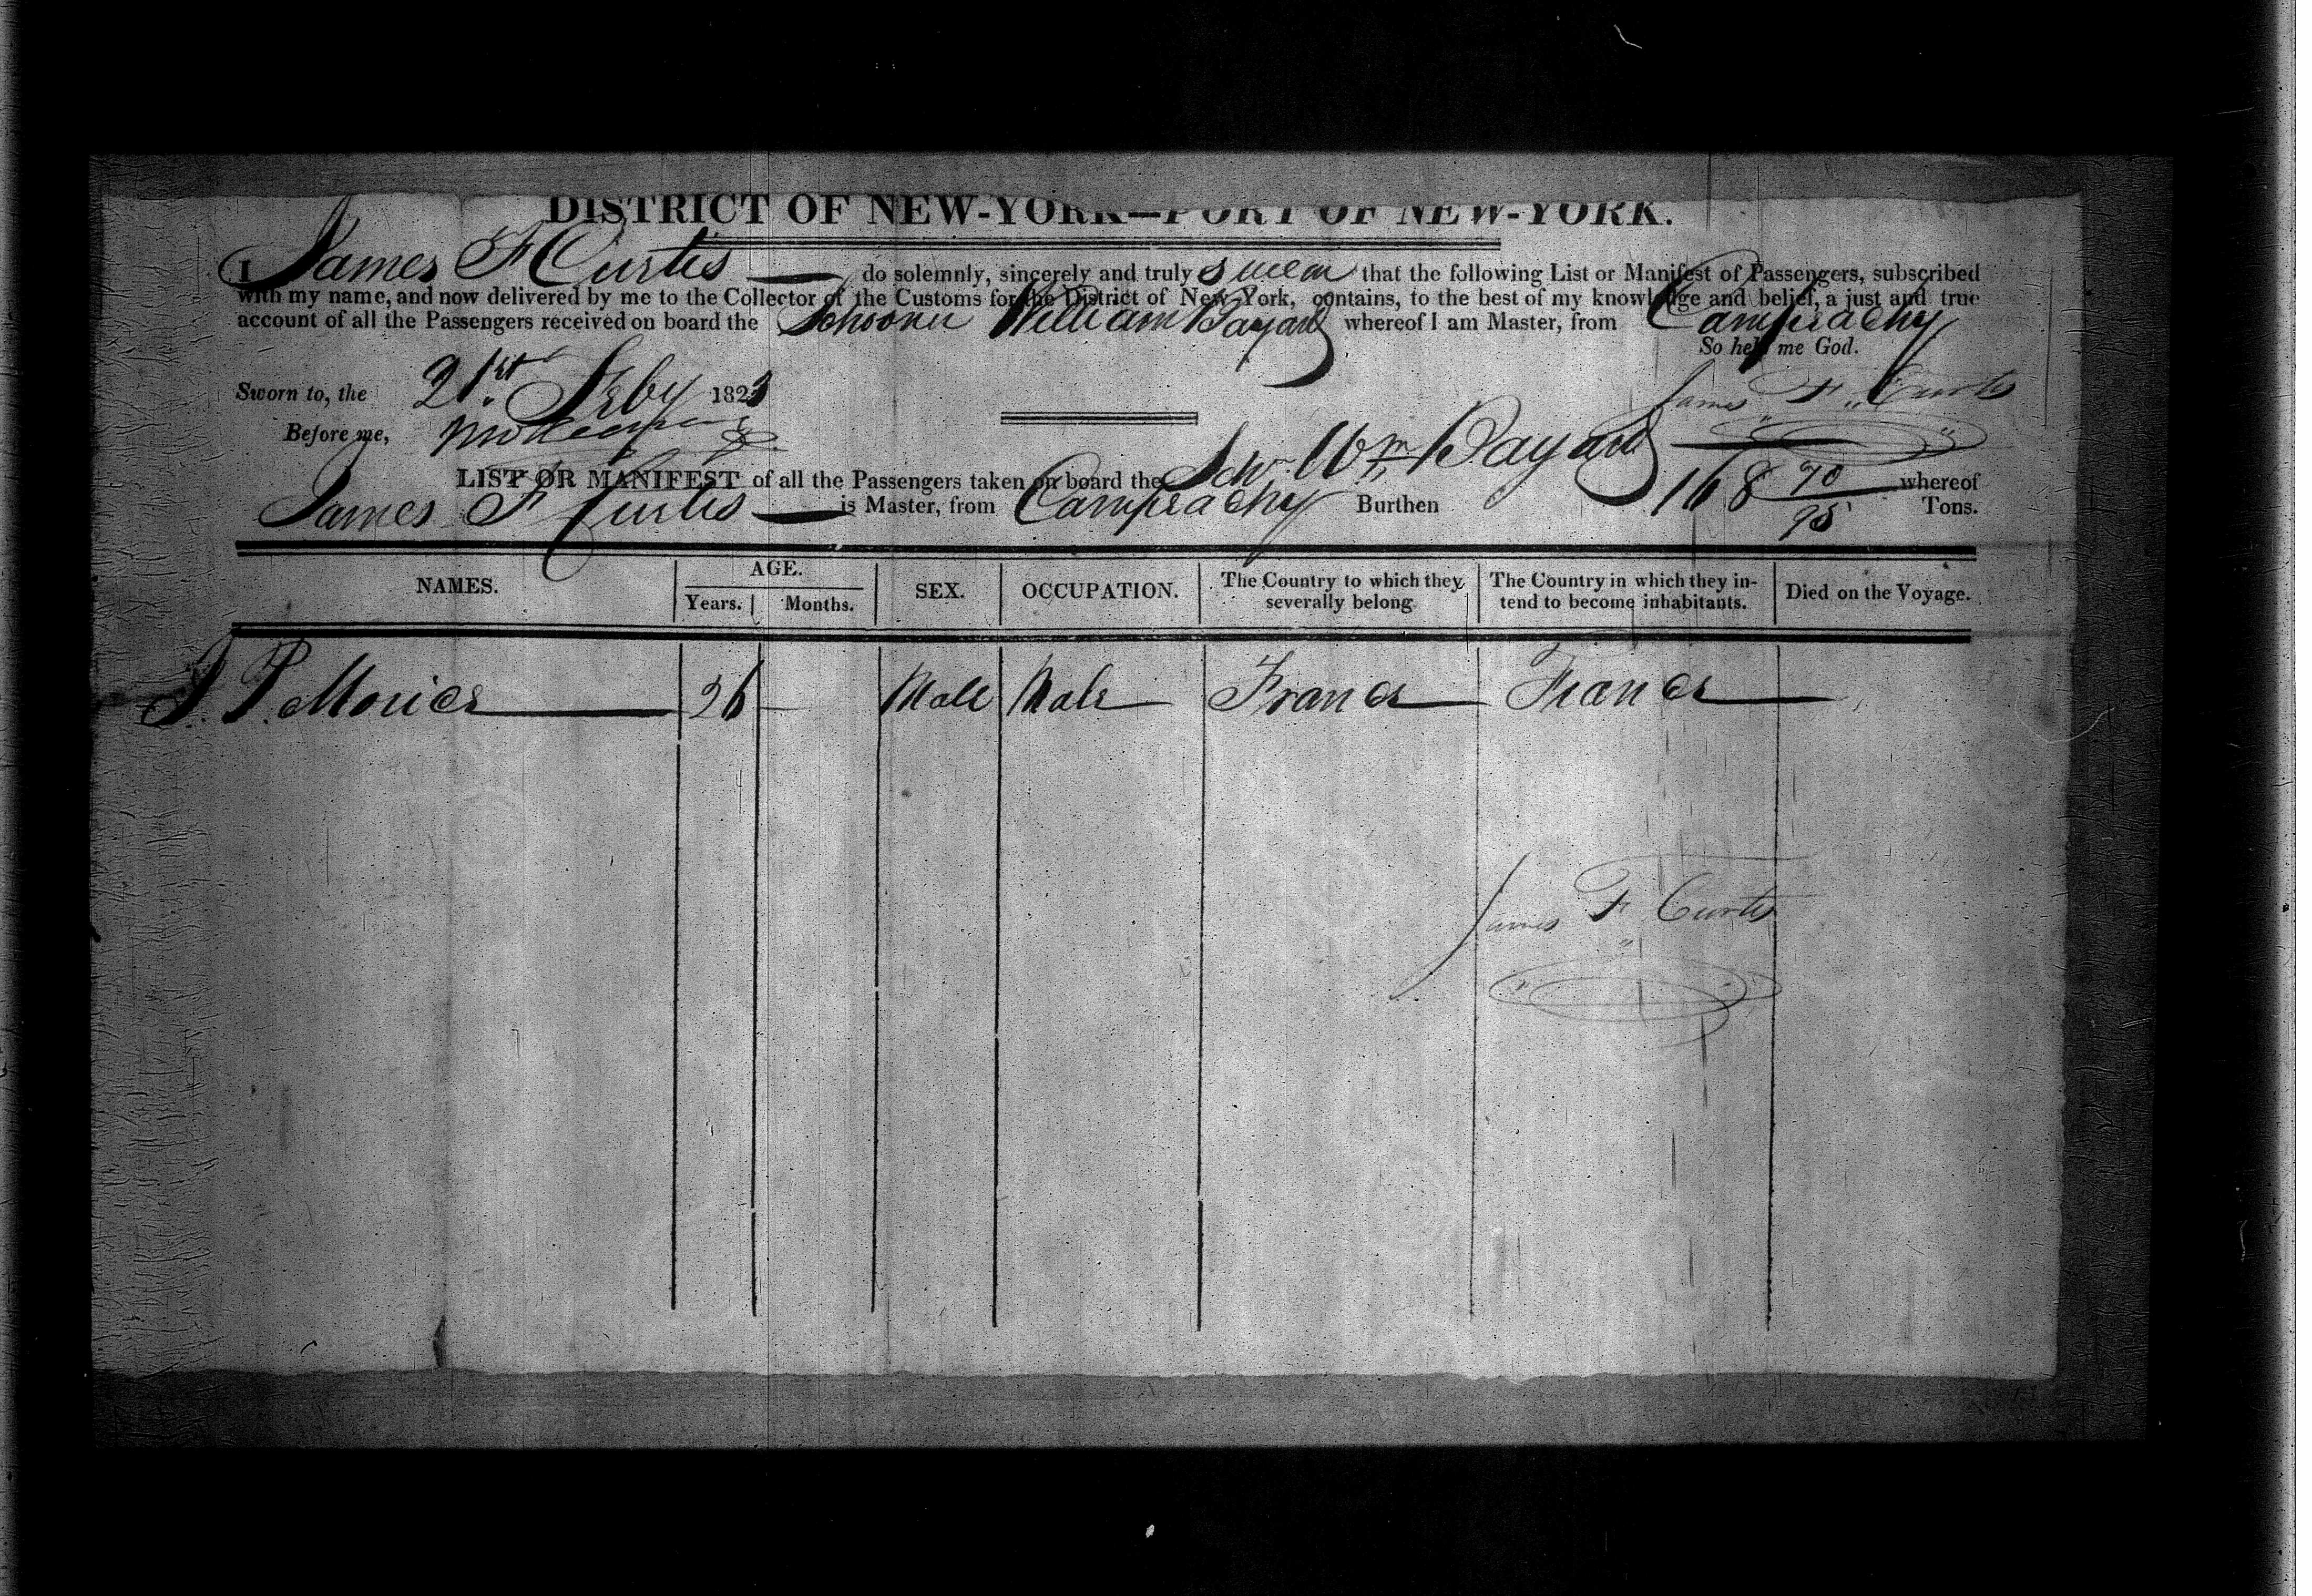 DISTRICT OF NEW-YORK—PORT OF NEW-YORK.
I James F Curtis do solemnly, sincerely and truly swear that the following List or Manifest of Passengers, subscribed
with my name, and now delivered by me to the Collector of the Customs for the District of New York, contains, to the best of my knowledge and belief, a just and true
account of all the Passengers received on board the Schooner William Bayard whereof I am Master, from Campeachy
So help me God.
Sworn to, the 21st Feby 1823
James F Curtis
Before me,
LIST OR MANIFEST of all the Passengers taken on board the Schr Wm Bayard whereof
James F Curtis is Master, from Campeachy Burthen 168 90/95 Tons.
NAMES. AGE. Years. Months. SEX. OCCUPATION. The Country to which they severally belong. The Country in which they intend to become inhabitants. Died on the Voyage.
26 — Male France France
James F Curtis